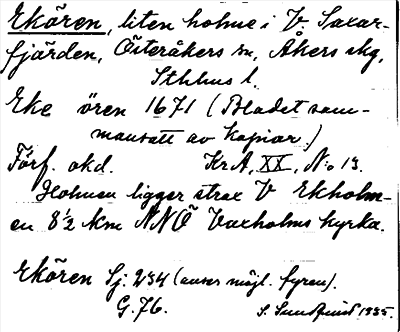 Ekören, liten holme i V Saxar-
fjärden, Österåkers sn, Åkers skg,
Sthlms l.
Eke ören 1671 (Bladet sam-
mansatt av kopior.)
Förf. okd. KrA, XX, No 13.
Holmen ligger strax V Ekholm-
en 8½ km NNÖ Vaxholms kyrka.
Ekören Sj. 234 (anser möjl. fyren).
G. 76. S. Sundqvist 1935.